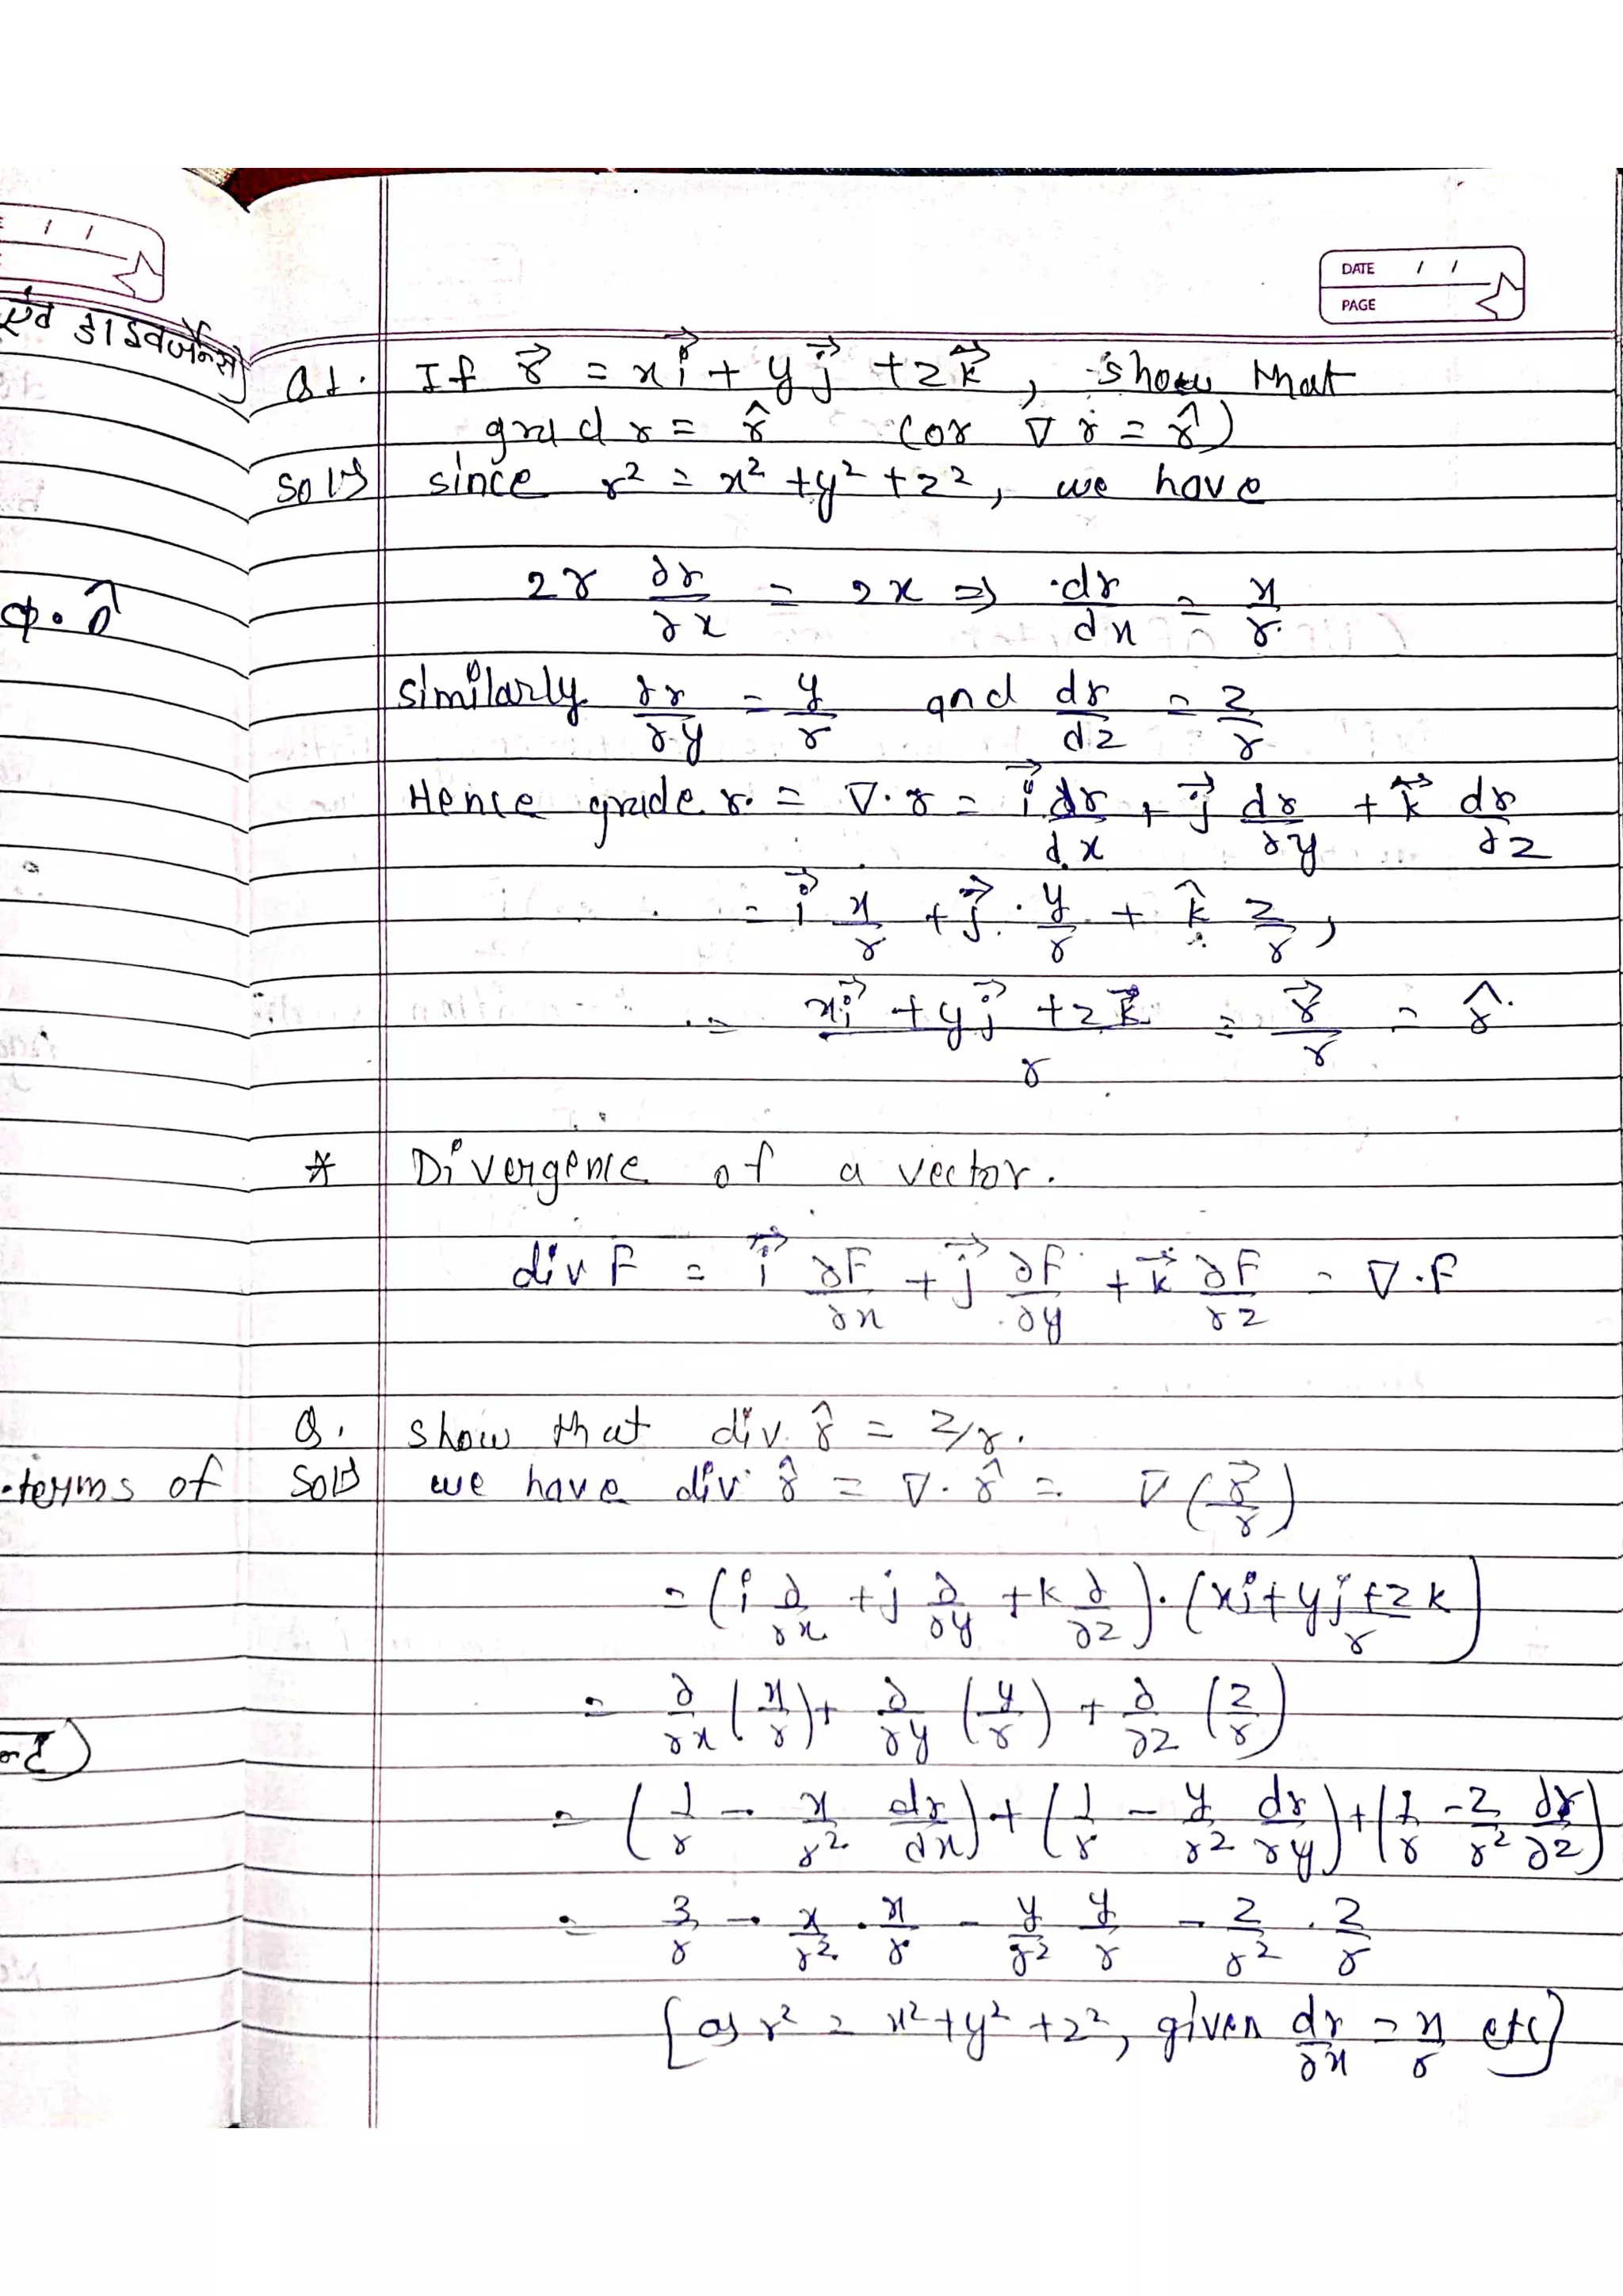 DATE / /
PAGE
/ /
एवं डाइवर्जेन्स)
Q1. If r⃗ = xi⃗ + yj⃗ + zk⃗, show that
grad r = r̂ (or ∇ r = r̂)
Sol⁠ⁿ since r² = x² + y² + z², we have
2r ∂r/∂x = 2x ⇒ dr/dx = x/r
φ. n̂
similarly ∂r/∂y = y/r and dr/dz = z/r
Hence grade r. = ∇.r = i⃗ dr/dx + j⃗ dr/∂y + k⃗ dr/∂z
= i⃗ x/r + j⃗ . y/r + k̂ z/r,
= (xi⃗ + yj⃗ + zk⃗)/r = r⃗/r = r̂
* Divergence of a vector.
div F = i⃗ ∂F/∂x + j⃗ ∂F/∂y + k⃗ ∂F/∂z = ∇.F
Q. show that div. r̂ = 2/r.
terms of
Solⁿ we have div r̂ = ∇. r̂ = ∇ (r⃗/r)
= (i ∂/∂x + j ∂/∂y + k ∂/∂z).((xi + yj + zk)/r)
= ∂/∂x (x/r) + ∂/∂y (y/r) + ∂/∂z (z/r)
= (1/r - x/r² dr/dx) + (1/r - y/r² dr/∂y) + (1/r - z/r² dr/∂z)
= 3/r - x/r² . x/r - y/r² y/r - z/r² . z/r
[as r² = x² + y² + z², given dr/∂x = x/r etc]